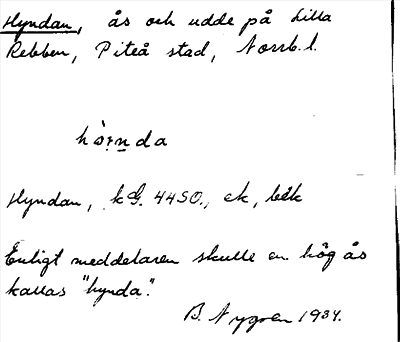 Hyndan, ås och udde på Lilla
Rebben, Piteå stad, Norrb. l.
Hyndan, kG. 4450., ek,
Enligt meddelaren skulle en hög ås
kallas "hynda".
B. Nygren 1934.